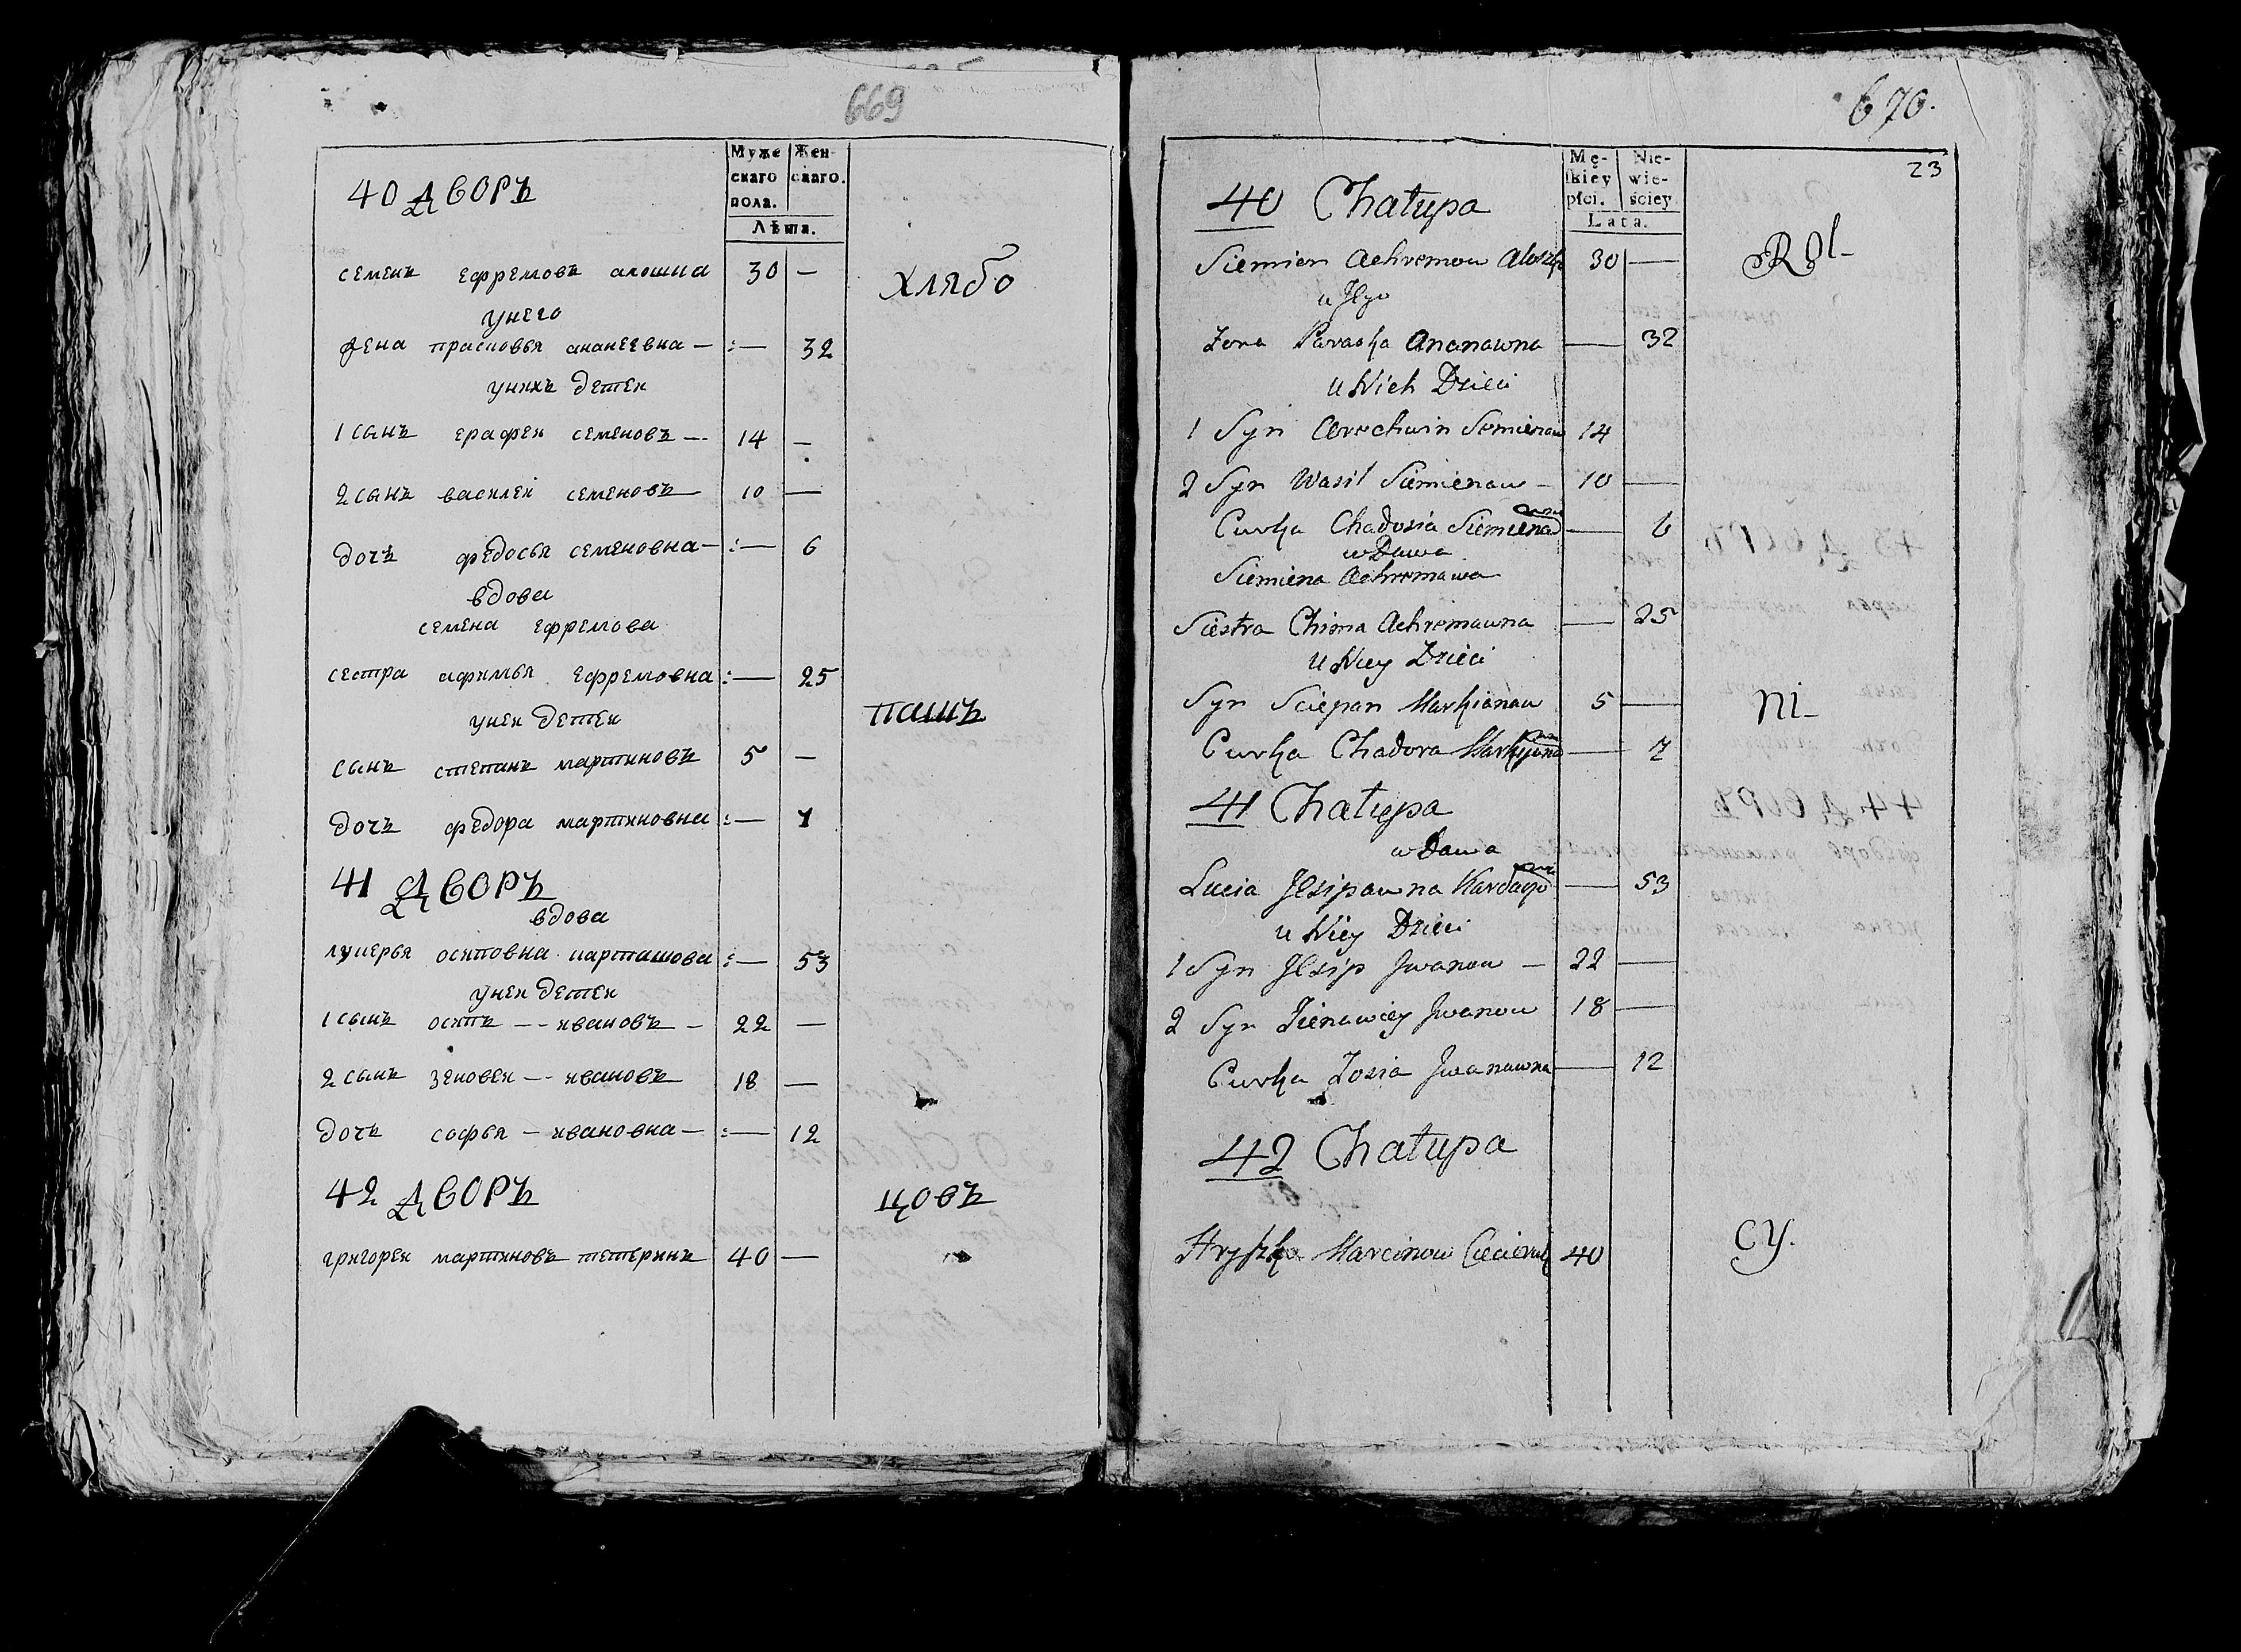 669
Муже
скаго
пола.
Жен-
скаго.
Лѣта.
40 ДВОРЪ
семенъ ефремовъ алошка 30 —
хлѣбо
унего
жена прасковья ананеевна — :— 32
унихъ детей
1 сынъ ерафей семеновъ — 14 —
2 сынъ василей семеновъ 10 —
дочь федосья семеновна — :— 6
вдова
семена ефремова
сестра афимья ефремовна :— 25
уней детей
пашъ
сынъ степанъ мартиновъ 5 —
дочь федора мартиновна :— 7
41 ДВОРЪ
вдова
лукерья осиповна карташова :— 53
уней детей
1 сынъ осипъ — ивановъ — 22 —
2 сынъ зеновей — ивановъ 18 —
дочь софья — ивановна — :— 12
42 ДВОРЪ
цовъ
григорей мартиновъ тетеринъ 40 —
670.
23
Mę-
skiey
płci.
Nie-
wie-
ściey
Lata.
40 Chałupa
Siemien Achremow Aloszka 30 —
Rol-
u Jego
Żona Paraska Ananawna — 32
u Nich Dzieci
1 Syn Arochwin Semienaw 14
2 Syn Wasil Siemienaw — 10 —
Curka Chadosia Siemienawna — 6
wDawa
Siemiena Achremawa
Siestra Chima Achremawna — 25
u Niey Dzieci
Syn Sciepan Markianaw 5 —
ni-
Curka Chadora Markijanawna — 7
41 Chałupa
wDawa
Lucia Jesipawna — 53
u Niey Dzieci
1 Syn Jesip Jwanow — 22 —
2 Syn Zienawiey Jwanow 18 —
Curka Zosia Jwanawna — 12
42 Chałupa
cy.
Hryszka Marcinow 40